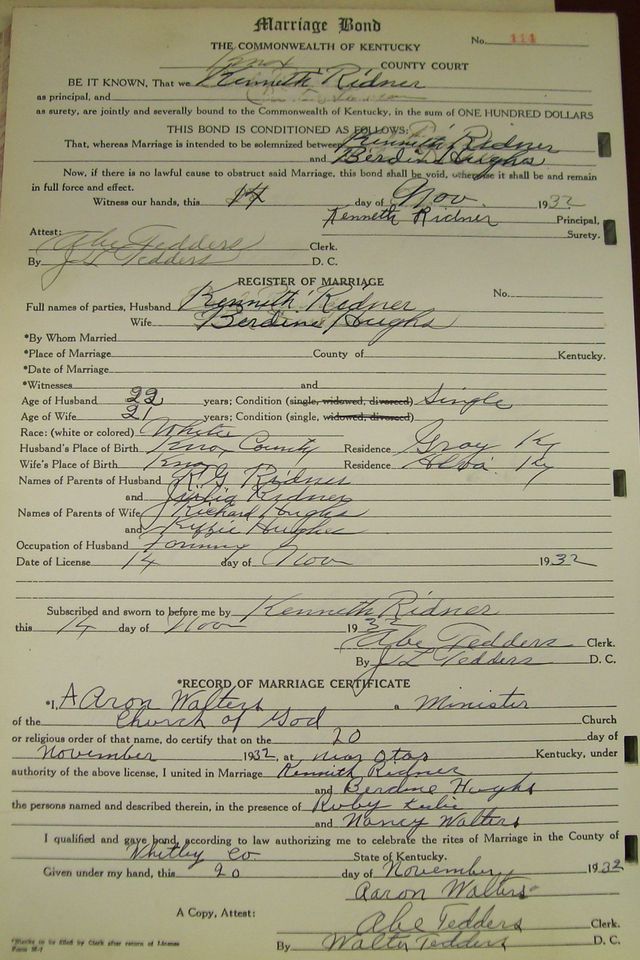 Marriage Bond
No. 114
THE COMMONWEALTH OF KENTUCKY
Knox COUNTY COURT
BE IT KNOWN, That we Kenneth Ridner
as principal, and
as surety, are jointly and severally bound to the Commonwealth of Kentucky, in the sum of ONE HUNDRED DOLLARS
THIS BOND IS CONDITIONED AS FOLLOWS:
That, whereas Marriage is intended to be solemnized between Kenneth Ridner
and Berdine Hughs
Now, if there is no lawful cause to obstruct said Marriage, this bond shall be void, otherwise it shall be and remain
in full force and effect.
Witness our hands, this 14 day of Nov. 1932
Kenneth Ridner Principal,
Surety.
Attest:
Abe Tedders Clerk.
By J L Tedders D. C.
REGISTER OF MARRIAGE
No.
Full names of parties, Husband Kenneth Ridner
Wife Berdine Hughs
*By Whom Married
*Place of Marriage County of Kentucky.
*Date of Marriage
*Witnesses and
Age of Husband 22 years; Condition (single, widowed, divorced) Single
Age of Wife 21 years; Condition (single, widowed, divorced)
Race: (white or colored) White
Husband's Place of Birth Knox County Residence Gray Ky
Wife's Place of Birth Knox Residence Ky
Names of Parents of Husband R. G. Ridner
and Julia Ridner
Names of Parents of Wife Richard Hughs
and Kizzie Hughes
Occupation of Husband
Date of License 14 day of Nov 1932
Subscribed and sworn to before me by Kenneth Ridner
this 14 day of Nov 1932
Abe Tedders Clerk.
By J L Tedders D. C.
*RECORD OF MARRIAGE CERTIFICATE
*I, AAron Walters a Minister
of the Church of God Church
or religious order of that name, do certify that on the 20 day of
November 1932, at Kentucky, under
authority of the above license, I united in Marriage Kenneth Ridner
and Berdine Hughs
the persons named and described therein, in the presence of Ruby
and Nancy Walters
I qualified and gave bond, according to law authorizing me to celebrate the rites of Marriage in the County of
Whitley Co State of Kentucky.
Given under my hand, this 20 day of November 1932
Aaron Walters
A Copy, Attest:
Abe Tedders Clerk.
By Walter Tedders D. C.
*Blanks to be filled by Clerk after return of License